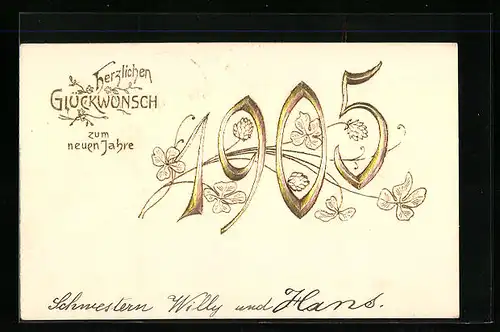 Herzlichen
GLÜCKWUNSCH
zum
neuen Jahre
1905
Schwestern Willy und Hans.